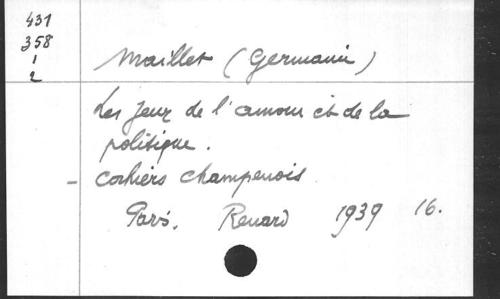 431
358
1
2
Maillet (Germain)
Les Jeux de l'amour et de la
politique.
- cahiers champenois
Paris. Renard 1939 16.